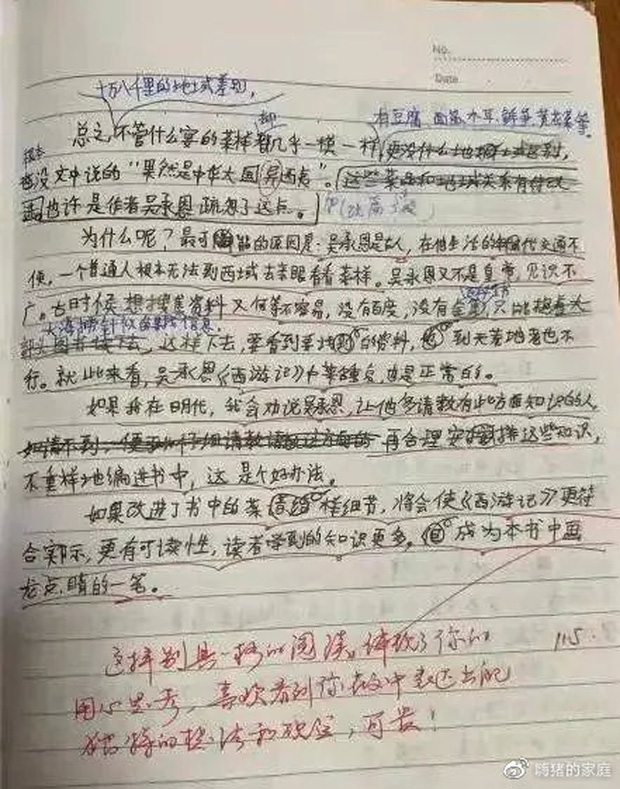 No.
Date
十万八千里的地域差别,
却 有豆腐 面筋 木耳 鲜笋 黄花菜等。
总之,不管什么宴的菜样都几乎一模一样,更没什么地域区别,
根本没文中说的"果然是中华大国异西夷"。这些菜品和地域关系有待改
也许是作者吴承恩疏忽了这点。
为什么呢?最可能的原因是:吴承恩是古人,在他生活的年代交通不
便,一个普通人根本无法到西域去亲眼看看菜样。吴承恩又不是皇帝,见识不
广。古时候想搜集资料又何等不容易,没有百度,没有 只能
大海捞针似的 信息
这样下去,要看到 资料, 到天荒地老也不
行。就此来看,吴承恩《西游记》中菜 也是正常的。
如果我在明代,我会劝说吴承恩,让他多请教有此方面知识的人,
再合理安排这些知识,
不重样地编进书中,这是个好办法。
如果改进了书中的菜 样细节,将会使《西游记》更符
合实际,更有可读性,读者学到的知识更多。 成为本书中画
龙点睛的一笔。
这样别具一格的阅读,体现了你的
用心思考,喜欢看到你在文中表达出的
独特的想法和观念,可贵!
11.5
嗨猪的家庭